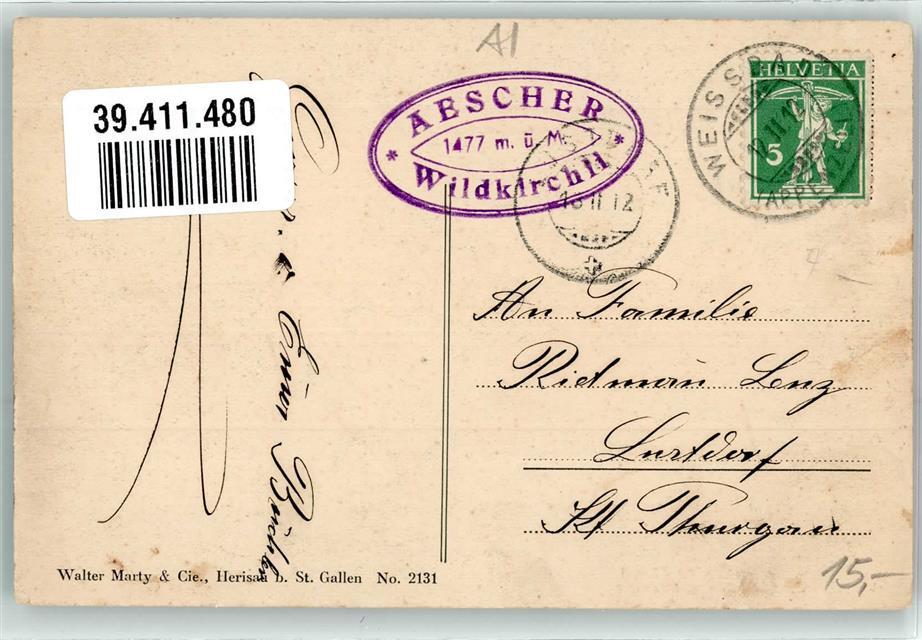 A1
39.411.480
* AESCHER *
1477 m. ü. M.
Wildkirchli
WEISSBAD
12.II.12
(APPENZELL)
HELVETIA
5
13 II 12
An Familie
Ridman Lenz
Lustdorf
Kt Thurgau
Walter Marty & Cie., Herisau b. St. Gallen No. 2131
15,-